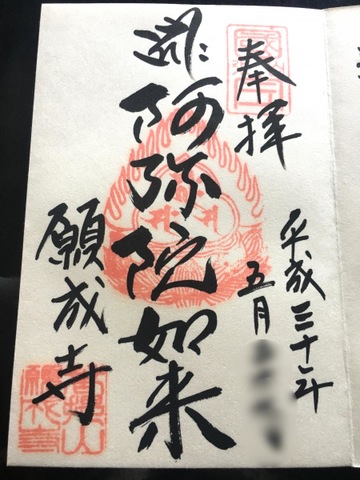 奉拝
平成三十年
五月
阿弥陀如来
願成寺